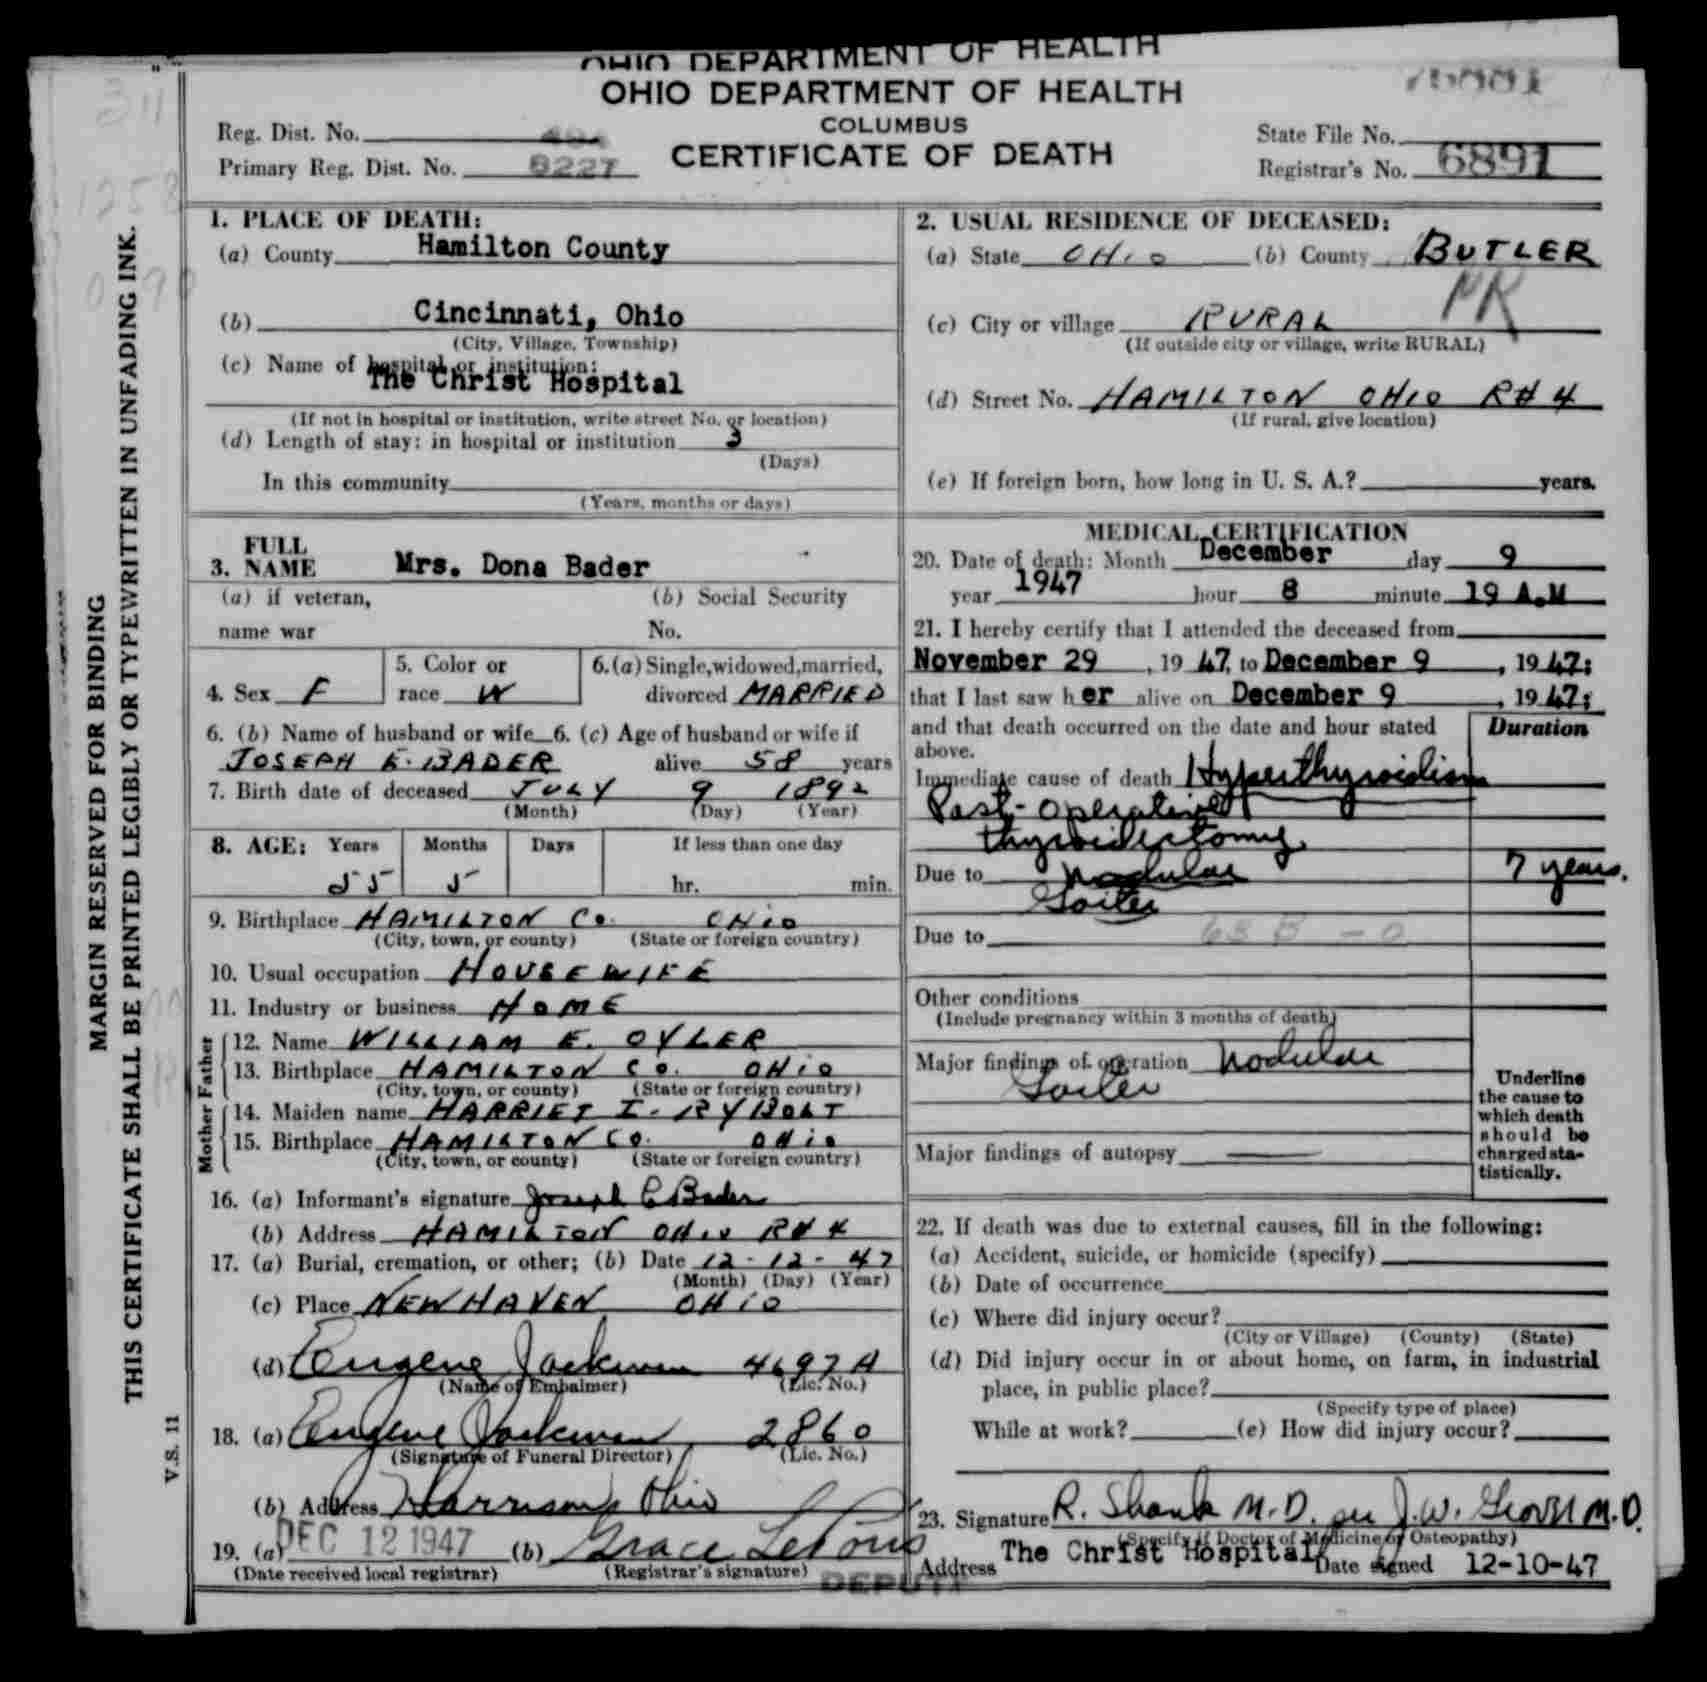 OHIO DEPARTMENT OF HEALTH
OHIO DEPARTMENT OF HEALTH
COLUMBUS
CERTIFICATE OF DEATH
Reg. Dist. No.
Primary Reg. Dist. No. 8227
State File No.
Registrar's No. 6891
MARGIN RESERVED FOR BINDING
THIS CERTIFICATE SHALL BE PRINTED LEGIBLY OR TYPEWRITTEN IN UNFADING INK.
V.S. 11
1. PLACE OF DEATH:
(a) County Hamilton County
(b) Cincinnati, Ohio
(City, Village, Township)
(c) Name of hospital or institution:
The Christ Hospital
(If not in hospital or institution, write street No. or location)
(d) Length of stay: in hospital or institution 3
(Days)
In this community
(Years, months or days)
2. USUAL RESIDENCE OF DECEASED:
(a) State OHIO (b) County BUTLER
(c) City or village RURAL
(If outside city or village, write RURAL)
(d) Street No. HAMILTON OHIO R#4
(If rural, give location)
(e) If foreign born, how long in U. S. A.? years.
3. FULL NAME Mrs. Dona Bader
(a) if veteran, name war
(b) Social Security No.
4. Sex F
5. Color or race W
6. (a) Single, widowed, married, divorced MARRIED
6. (b) Name of husband or wife 6. (c) Age of husband or wife if
JOSEPH E. BADER alive 58 years
7. Birth date of deceased JULY 9 1892
(Month) (Day) (Year)
8. AGE: Years Months Days If less than one day
55 5 hr. min.
9. Birthplace HAMILTON Co. OHIO
(City, town, or county) (State or foreign country)
10. Usual occupation HOUSEWIFE
11. Industry or business HOME
Father
12. Name WILLIAM E. OYLER
13. Birthplace HAMILTON Co. OHIO
(City, town, or county) (State or foreign country)
Mother
14. Maiden name HARRIET I. RYBOLT
15. Birthplace HAMILTON Co. OHIO
(City, town, or county) (State or foreign country)
16. (a) Informant's signature Joseph E Bader
(b) Address HAMILTON OHIO R#4
17. (a) Burial, cremation, or other; (b) Date 12-12-47
(Month) (Day) (Year)
(c) Place NEW HAVEN OHIO
(d) Eugene Jackman 4697A
(Name of Embalmer) (Lic. No.)
18. (a) Eugene Jackman 2860
(Signature of Funeral Director) (Lic. No.)
(b) Address Harrison, Ohio
19. (a) DEC 12 1947 (b) Grace
(Date received local registrar) (Registrar's signature)
DEPUTY
MEDICAL CERTIFICATION
20. Date of death: Month December day 9
year 1947 hour 8 minute 19 A.M
21. I hereby certify that I attended the deceased from
November 29, 1947, to December 9, 1947;
that I last saw her alive on December 9, 1947;
and that death occurred on the date and hour stated above.
Duration
Immediate cause of death Hyperthyroidism
Post-operative
thyroidectomy
Due to Nodular 7 years.
Goiter
Due to 63 B - 0
Other conditions
(Include pregnancy within 3 months of death)
Major findings of operation Nodular
Goiter
Major findings of autopsy —
Underline the cause to which death should be charged statistically.
22. If death was due to external causes, fill in the following:
(a) Accident, suicide, or homicide (specify)
(b) Date of occurrence
(c) Where did injury occur?
(City or Village) (County) (State)
(d) Did injury occur in or about home, on farm, in industrial
place, in public place?
(Specify type of place)
While at work? (e) How did injury occur?
23. Signature R. Shank M.D. per J.W. M.D.
(Specify if Doctor of Medicine or Osteopathy)
Address The Christ Hospital Date signed 12-10-47